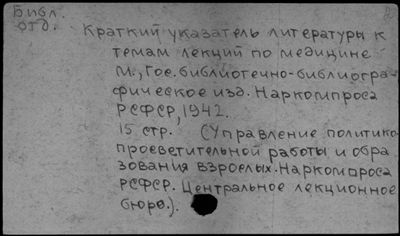 Библ.
отд.
Краткий указатель литературы к
темам лекций по медицине
М., Гос. библиотечно-библиогра-
фическое изд. Наркомпроса
РСФСР, 1942.
15 стр. (Управление политико-
просветительной работы и обра-
зования взрослых. Наркомпроса
РСФСР. Центральное лекционное
бюро.).